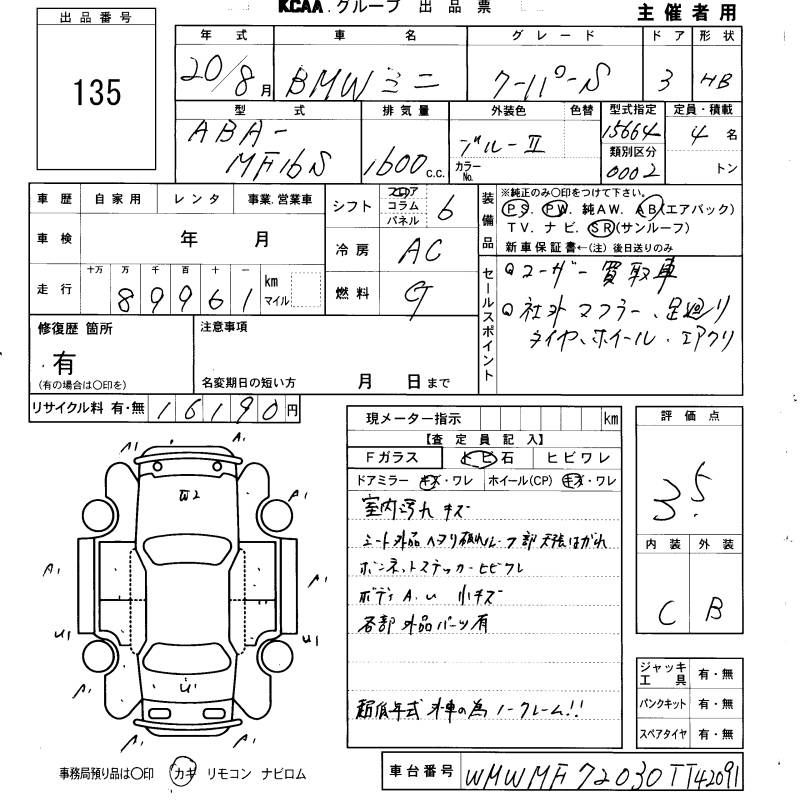 KCAA.グループ 出品票
主催者用
出品番号
135
年式 車名 グレード ドア 形状
20/8月 BMWミニ クーパーS 3 HB
型式 排気量 外装色 色替 型式指定 定員・積載
ABA-MF16S 1600c.c. ブルーⅡ 15664 4名
カラーNo. 類別区分
0002 トン
車歴 自家用 レンタ 事業.営業車
車検 年 月
走行 十万 万 千 百 十 一 km マイル
89961
シフト フロア コラム パネル 6
冷房 AC
燃料 G
装備品
※純正のみ〇印をつけて下さい。
PS. PW. 純AW. AB(エアバック)
TV. ナビ. SR(サンルーフ)
新車保証書←(注) 後日送りのみ
セールスポイント
ユーザー買取車
社外マフラー、足廻り
タイヤ、ホイール・エアクリ
修復歴 箇所
有
(有の場合は〇印を)
注意事項
名変期日の短い方 月 日まで
リサイクル料 有・無 16190円
現メーター指示 km
【査定員記入】
Fガラス トビ石 ヒビワレ
ドアミラー キズ・ワレ ホイール(CP) キズ・ワレ
室内汚れ キズ
シート外品 ヘタリ 破れ ルーフ部天張はがれ
ボンネットステッカーヒビワレ
ボディA.U 小キズ
各部外品パーツ有
超低年式 外車の為 ノークレーム!!
評価点
3.5
内装 外装
C B
ジャッキ工具 有・無
パンクキット 有・無
スペアタイヤ 有・無
A1 A1
W2
A1 A1
U1 U1
A1 A1
U1
A1 A1
事務局預り品は〇印 カギ リモコン ナビロム
車台番号 WMWMF72030TT42091